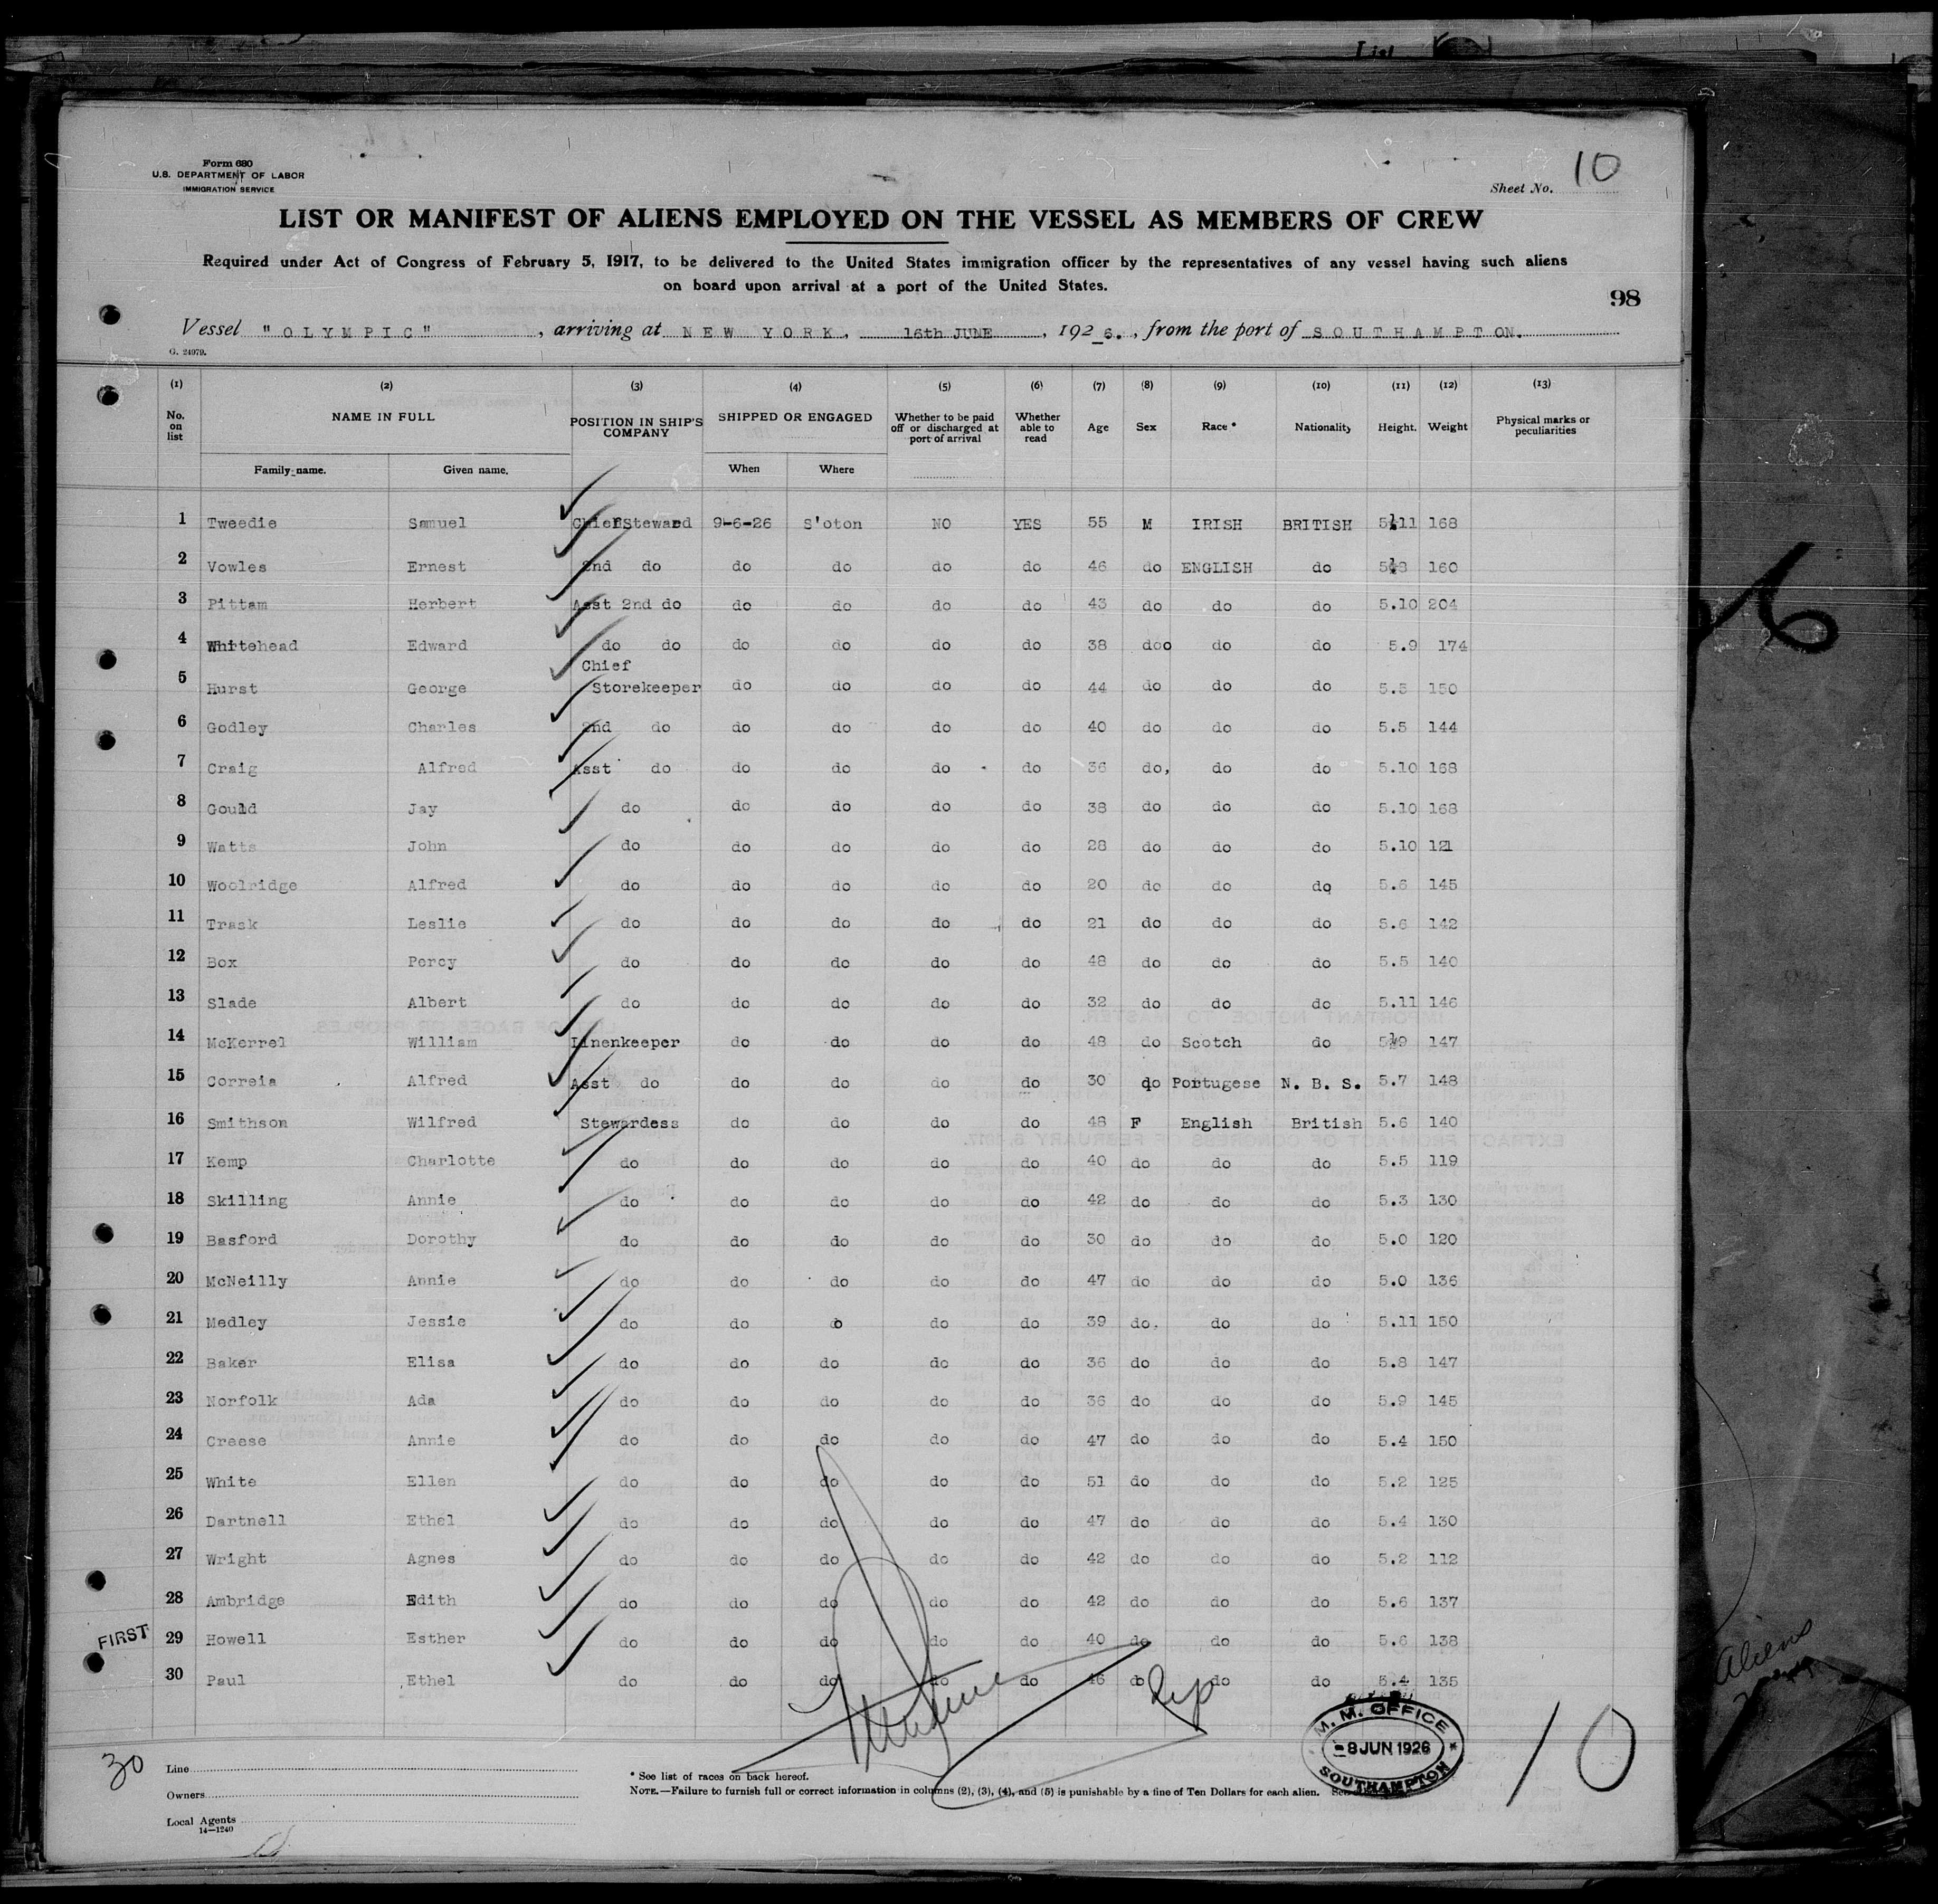 List
Form 680
U.S. DEPARTMENT OF LABOR
IMMIGRATION SERVICE
Sheet No. 10
LIST OR MANIFEST OF ALIENS EMPLOYED ON THE VESSEL AS MEMBERS OF CREW
Required under Act of Congress of February 5, 1917, to be delivered to the United States immigration officer by the representatives of any vessel having such aliens
on board upon arrival at a port of the United States.
98
Vessel "OLYMPIC", arriving at NEW YORK, 16th JUNE, 192 6., from the port of SOUTHAMPTON.
G. 24079.
(1) (2) (3) (4) (5) (6) (7) (8) (9) (10) (11) (12) (13)
No. on list NAME IN FULL POSITION IN SHIP'S COMPANY SHIPPED OR ENGAGED Whether to be paid off or discharged at port of arrival Whether able to read Age Sex Race * Nationality Height. Weight Physical marks or peculiarities
Family name. Given name. When Where
1 Tweedie Samuel Chief Steward 9-6-26 S'oton NO YES 55 M IRISH BRITISH 5.11 168
2 Vowles Ernest 2nd do do do do do 46 do ENGLISH do 5.8 160
3 Pittam Herbert Asst 2nd do do do do do 43 do do do 5.10 204
4 Whitehead Edward do do do do do do 38 doo do do 5.9 174
5 Hurst George Chief Storekeeper do do do do 44 do do do 5.5 150
6 Godley Charles 2nd do do do do do 40 do do do 5.5 144
7 Craig Alfred Asst do do do do do 36 do, do do 5.10 168
8 Gould Jay do do do do do 38 do do do 5.10 168
9 Watts John do do do do do 28 do do do 5.10 121
10 Woolridge Alfred do do do do do 20 do do do 5.6 145
11 Trask Leslie do do do do do 21 do do do 5.6 142
12 Box Percy do do do do do 48 do do do 5.5 140
13 Slade Albert do do do do do 32 do do do 5.11 146
14 McKerrel William Linenkeeper do do do do 48 do Scotch do 5.9 147
15 Correia Alfred Asst do do do do do 30 do Portugese N. B. S. 5.7 148
16 Smithson Wilfred Stewardess do do do do 48 F English British 5.6 140
17 Kemp Charlotte do do do do do 40 do do do 5.5 119
18 Skilling Annie do do do do do 42 do do do 5.3 130
19 Basford Dorothy do do do do do 30 do do do 5.0 120
20 McNeilly Annie do do do do do 47 do do do 5.0 136
21 Medley Jessie do do do do do 39 do. do do 5.11 150
22 Baker Elisa do do do do do 36 do do do 5.8 147
23 Norfolk Ada do do do do do 36 do do do 5.9 145
24 Creese Annie do do do do do 47 do do do 5.4 150
25 White Ellen do do do do do 51 do do do 5.2 125
26 Dartnell Ethel do do do do do 47 do do do 5.4 130
27 Wright Agnes do do do do do 42 do do do 5.2 112
28 Ambridge Edith do do do do do 42 do do do 5.6 137
FIRST
29 Howell Esther do do do do do 40 do do do 5.6 138
30 Paul Ethel do do do do do 46 do do do 5.4 135
30
Line
Owners
Local Agents
14—1240
* See list of races on back hereof.
NOTE.—Failure to furnish full or correct information in columns (2), (3), (4), and (5) is punishable by a fine of Ten Dollars for each alien.
M. M. OFFICE
8 JUN 1926
SOUTHAMPTON
10
Aliens